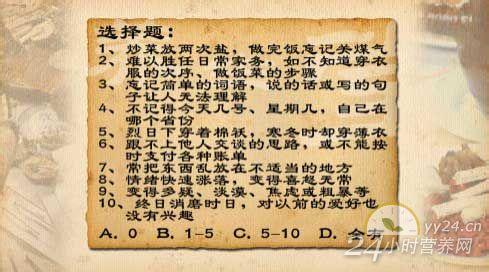 选择题：
1、炒菜放两次盐，做完饭忘记关煤气
2、难以胜任日常家务，如不知道穿衣
服的次序、做饭菜的步骤
3、忘记简单的词语，说的话或写的句
子让人无法理解
4、不记得今天几号、星期几，自己在
哪个省份
5、烈日下穿着棉袄，寒冬时却穿薄衣
6、跟不上他人交谈的思路，或不能按
时支付各种账单
7、常把东西乱放在不适当的地方
8、情绪快速涨落，变得喜怒无常
9、变得多疑、淡漠、焦虑或粗暴等
10、终日消磨时日，对以前的爱好也
没有兴趣
A. 0 B. 1-5 C. 5-10 D. 全有
yy24.cn
24小时营养网